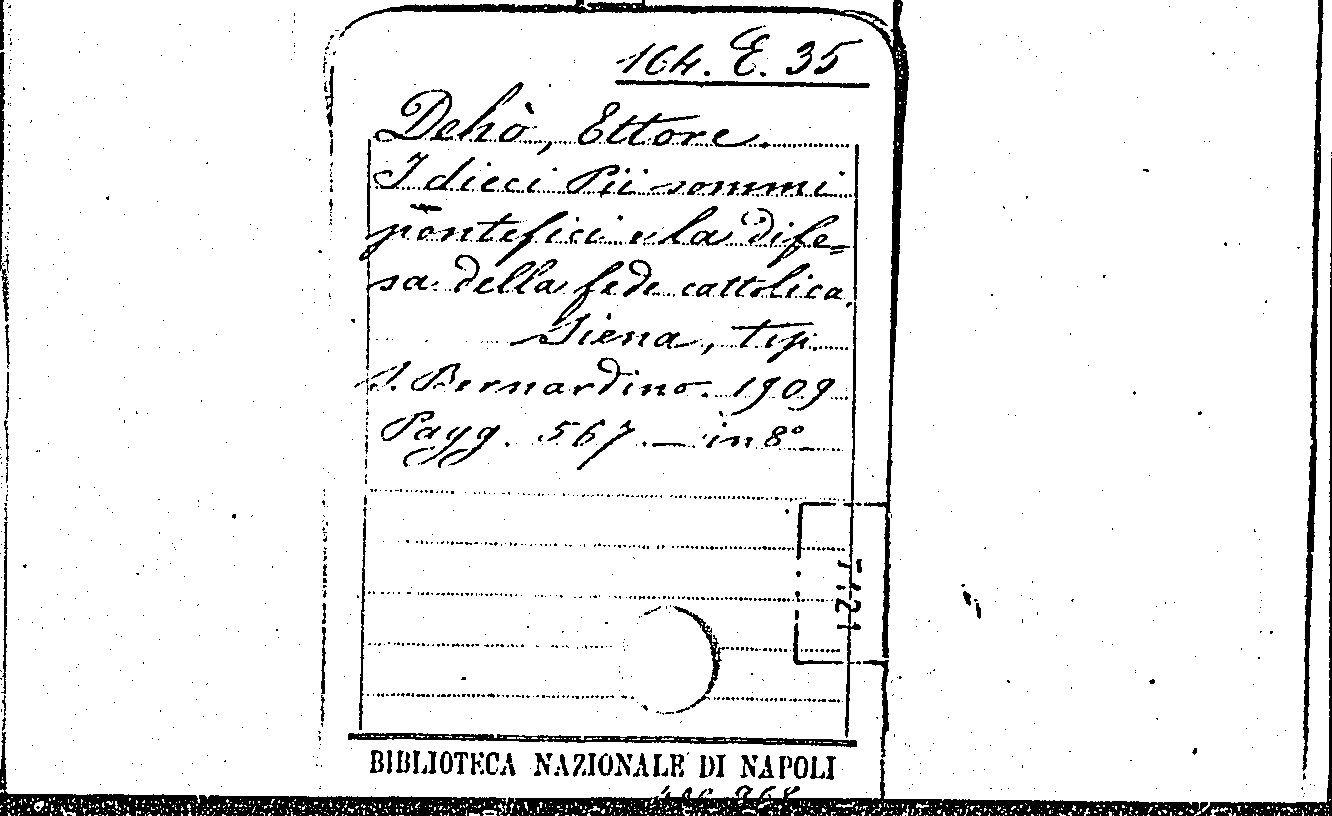 164. E. 35
Dehò, Ettore.
I dieci Pii sommi
pontefici e la dife=
sa della fede cattolica.
Siena, tip.
S. Bernardino. 1909
Pagg. 567. — in 8º
BIBLIOTECA NAZIONALE DI NAPOLI